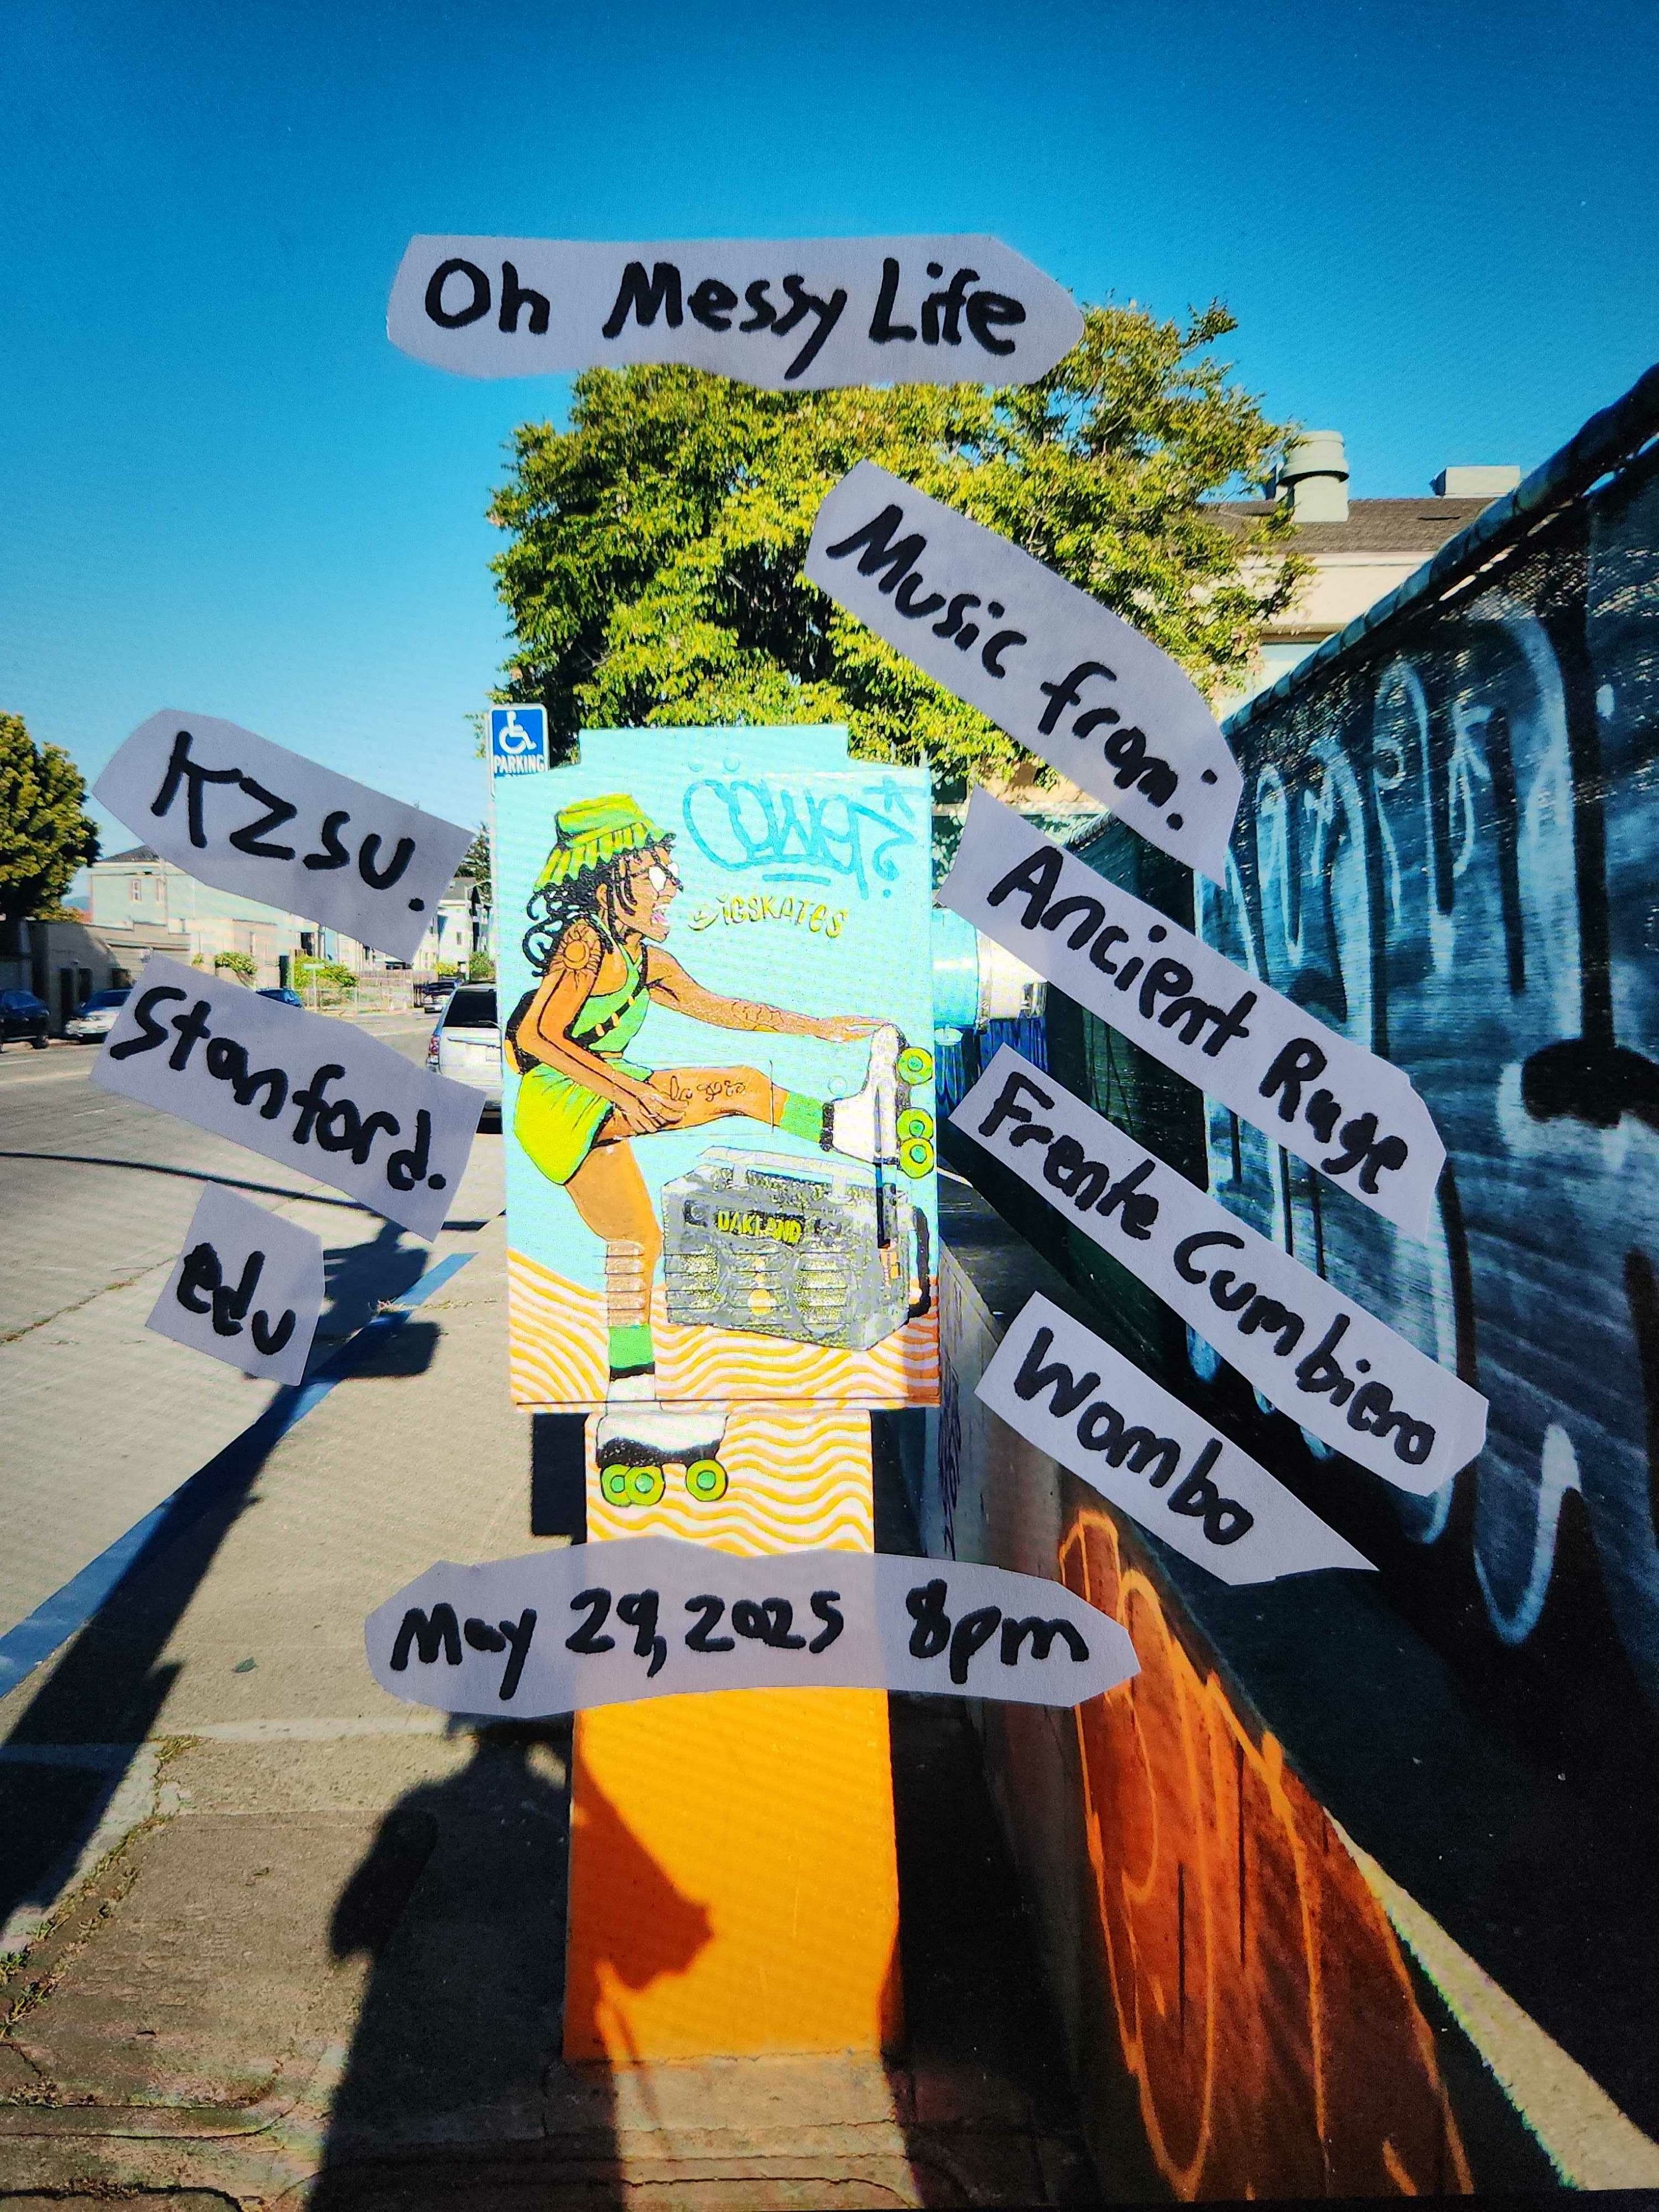 Oh Messy Life
Music from:
Ancient Rage
Frente Cumbiero
Wombo
KZSU.
Stanford.
edu
PARKING
OAKLAND
May 29, 2025 8pm